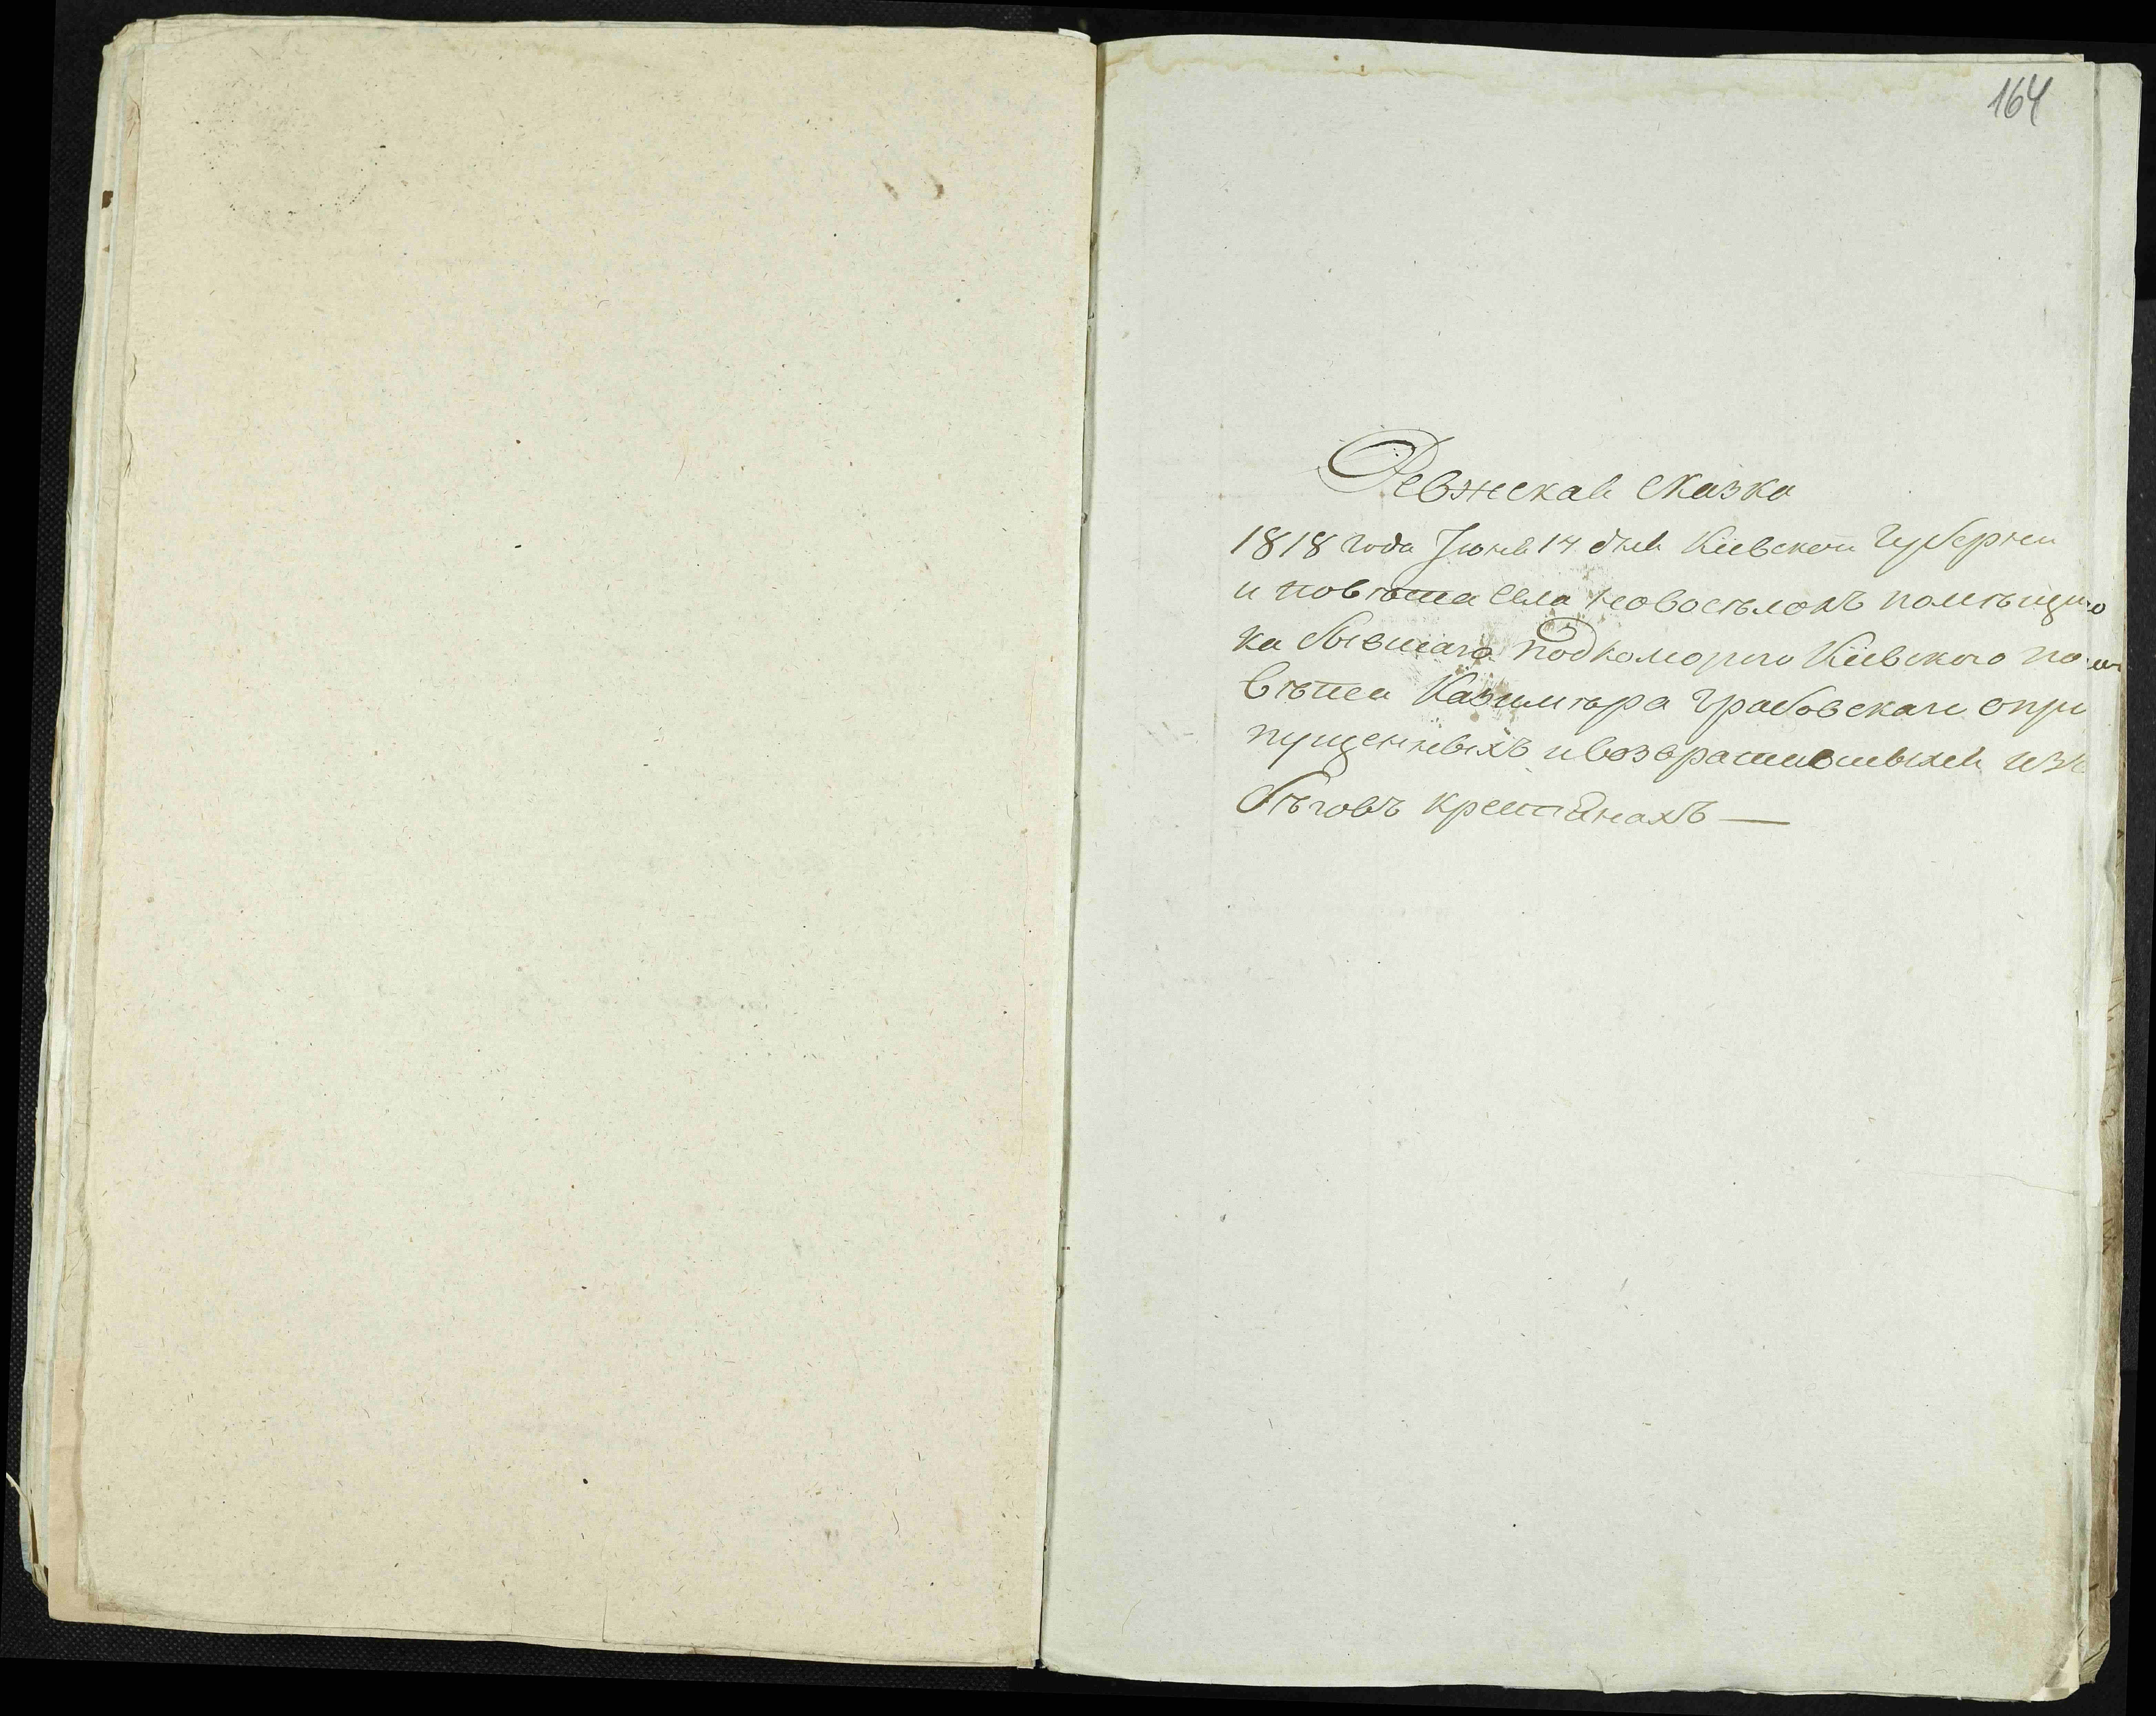 164
Ревжская сказка
1818 года Іюня 14 дня Кіевской Губернии
и повѣта села Новосѣлокъ помѣщи
ка бывшаго Подкоморого Кіевского по
вѣта Казимѣра Грабовскаго о про
пущенныхъ и возвратившихся изъ
бѣговъ крестянахъ —